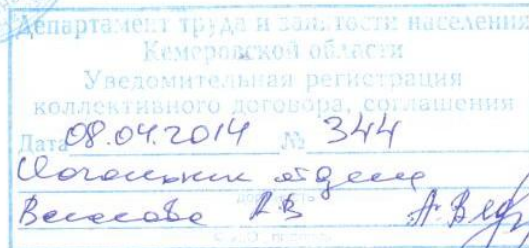 Департамент труда и занятости населения
Кемеровской области
Уведомительная регистрация
коллективного договора, соглашения
Дата 08.04.2014 № 344
отдела
А.В.